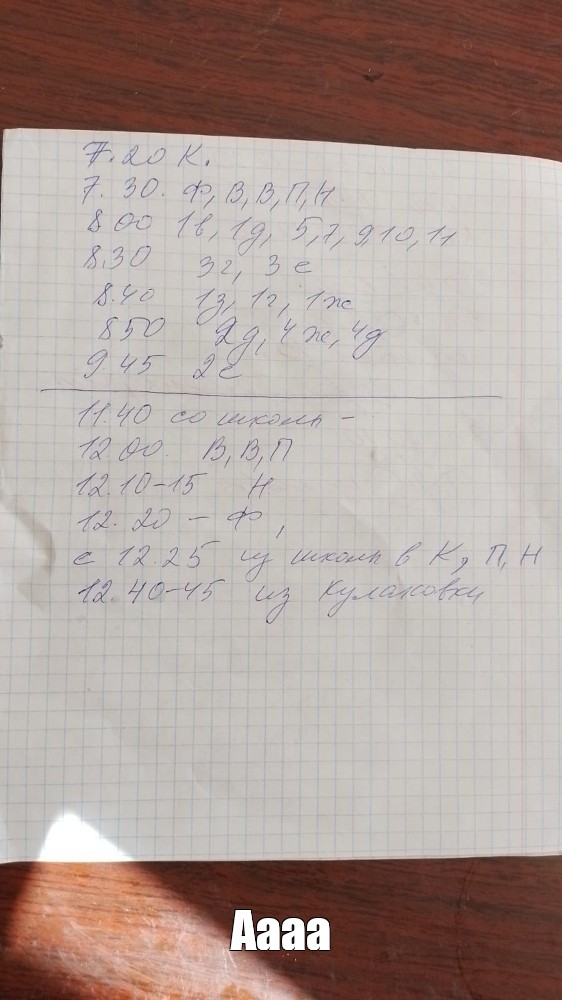 7.20 К.
7.30. Ф, В, В, П, Н
8.00 1в, 1д, 5, 7, 9, 10, 11
8.30 3г, 3е
8.40 1з, 1г, 1ж
8.50 2д, 4ж, 4д
9.45 2е
11.40 со школы -
12.00. В, В, П
12.10-15 Н
12.20 - Ф,
с 12.25 из школы в К, П, Н
12.40-45 из Кулаковки
Аааа